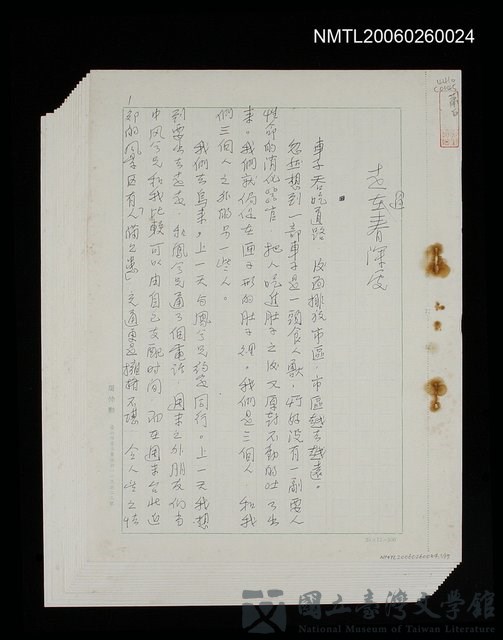 NMTL20060260024
走在春深處
車子吞吃道路 後面排放市區，市區越去越遠。
忽然想到一部車子是一頭食人獸，好好沒有一副要人
性命的消化器官，把人吃進肚子之後又原封不動的吐了出
來。我們就侷促在匣子形的肚子裡，我們是三個人 和我
們三個人之外的另一些人。
我們去烏來，上一天與鳳兮兄約定同行。上一天我想
到要出去走走，和鳳兮兄通了個電話 週末之外朋友們當
中鳳兮兄和我比較可以由自己支配時間 而在週末台北近
郊的風景區有「人滿之患」交通更是擁擠不堪 令人望之怯
NMTL20060260024
國立臺灣文學館
National Museum of Taiwan Literature